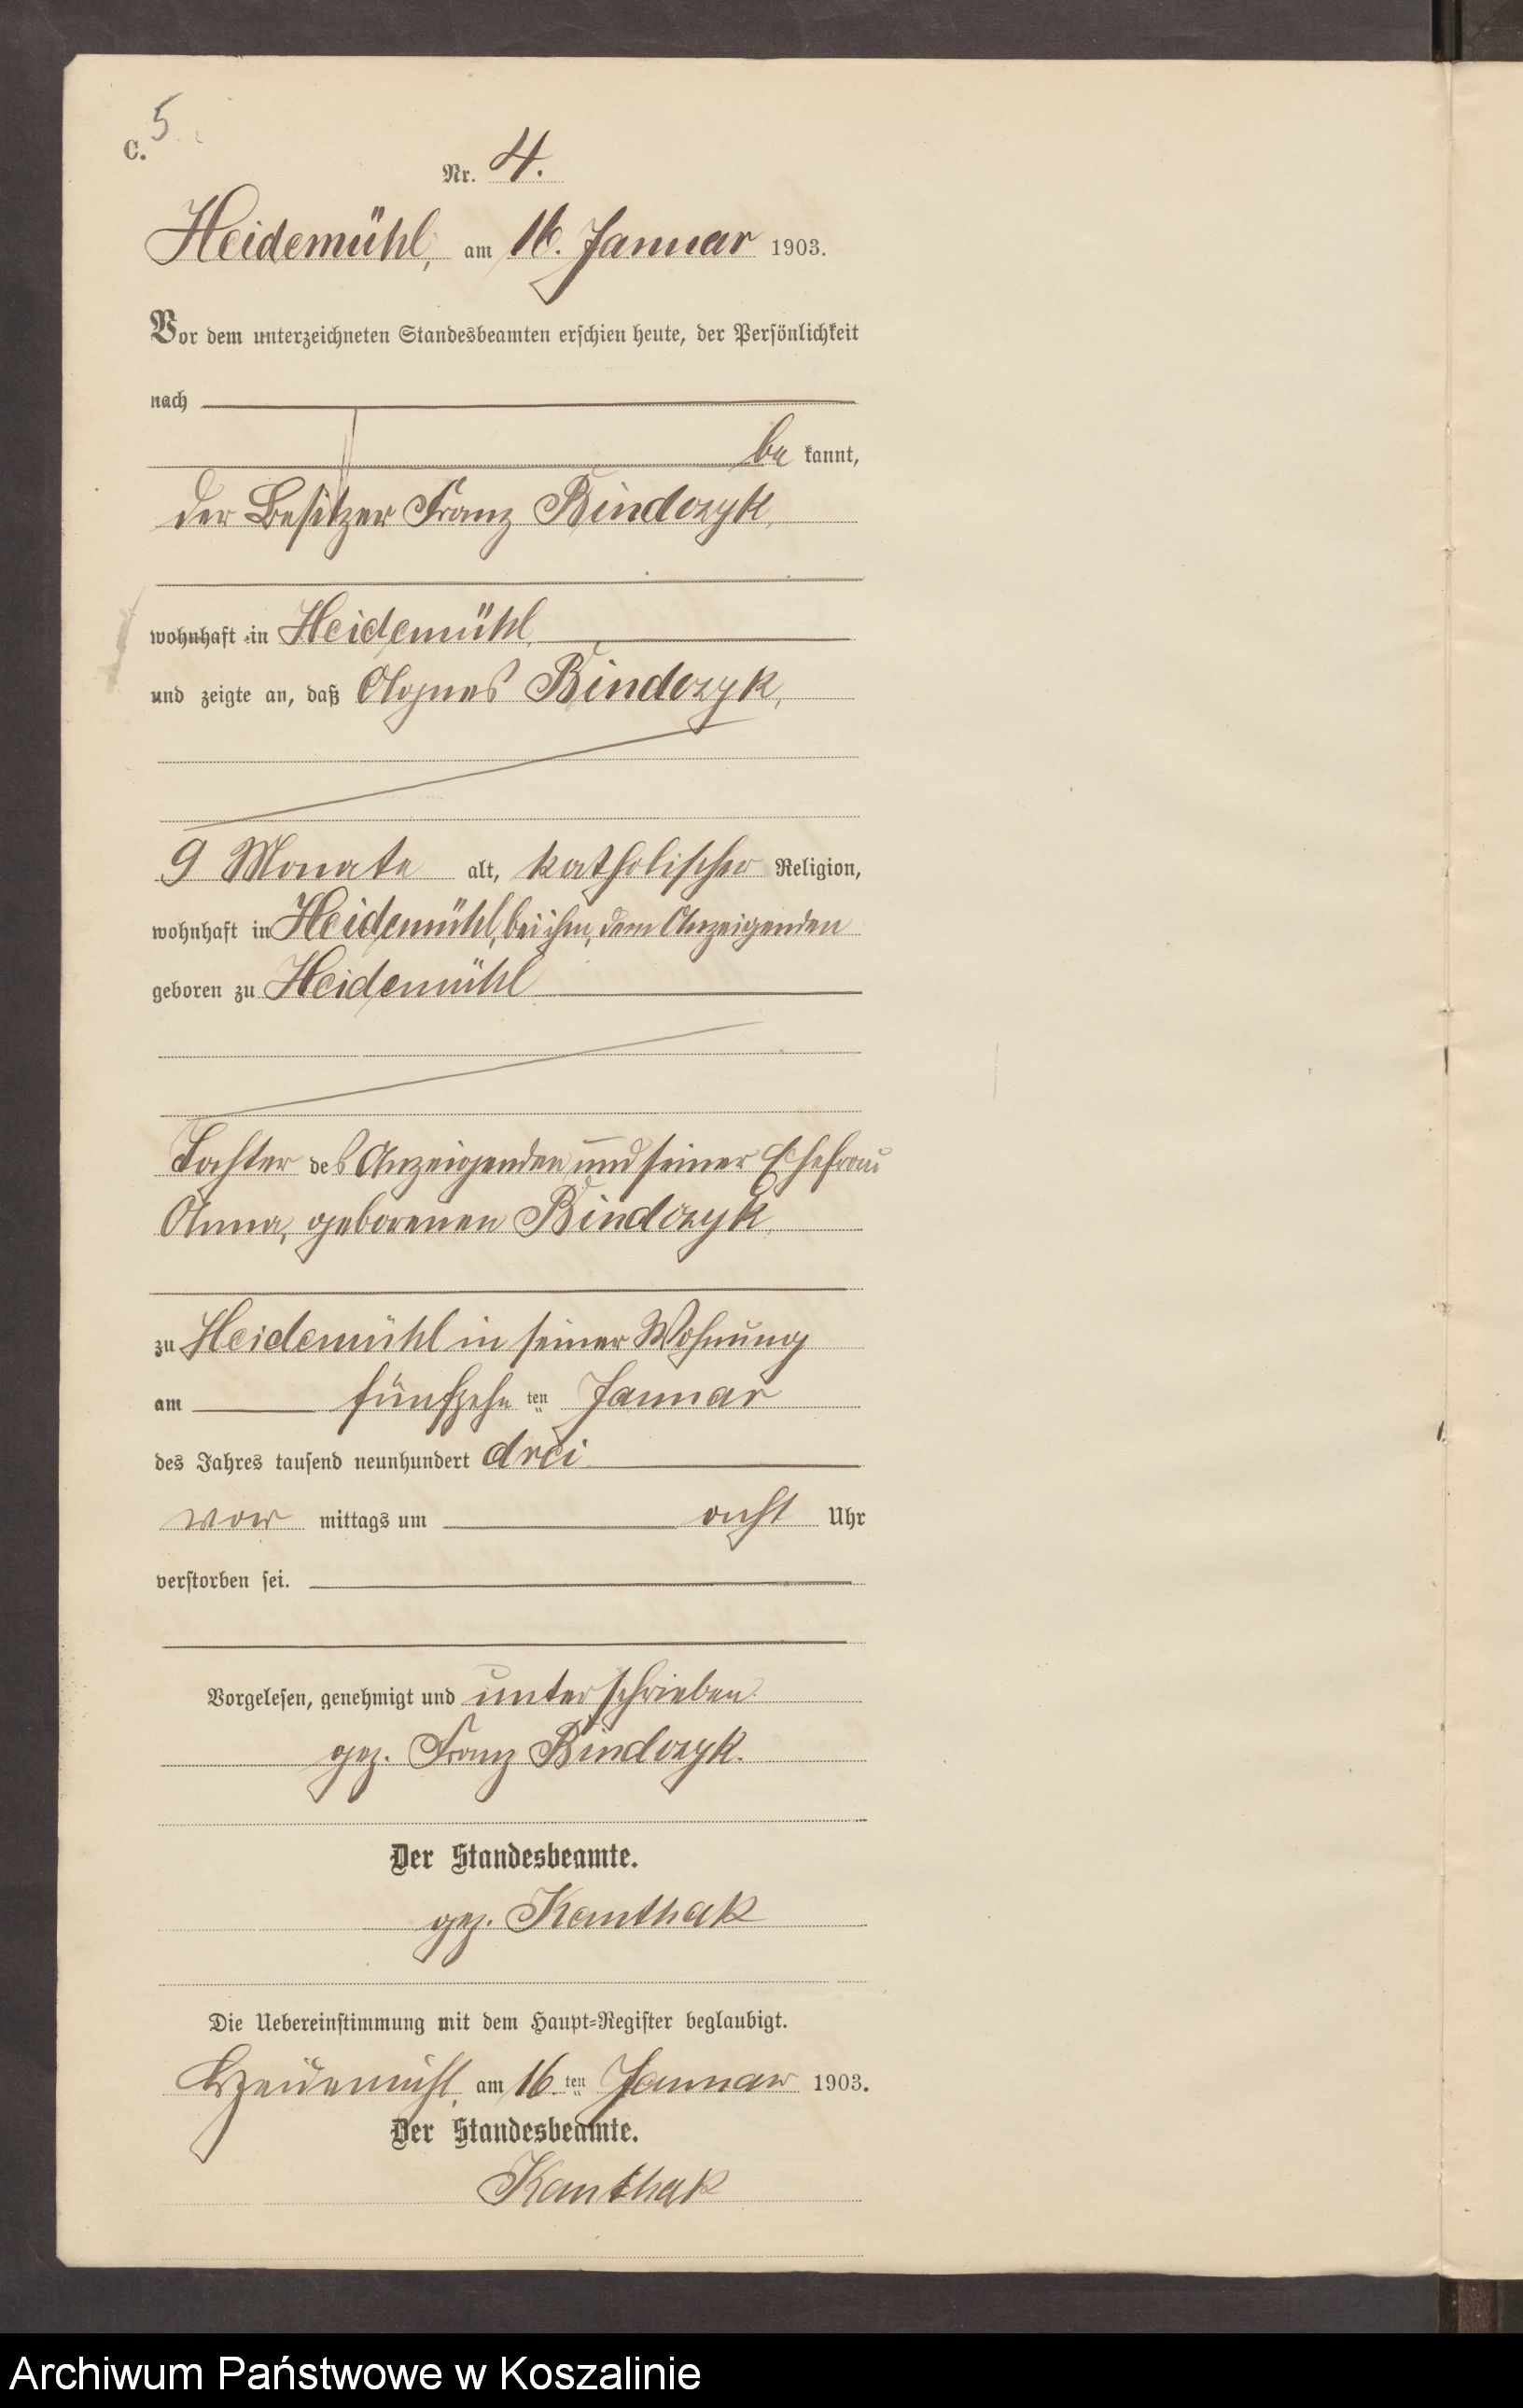 5
C.
Nr. 4.
Heidemühl, am 16. Januar 1903.
Vor dem unterzeichneten Standesbeamten erschien heute, der Persönlichkeit
nach
be kannt,
der Besitzer Franz Bindczyk,
wohnhaft in Heidemühl,
und zeigte an, daß Agnes Bindczyk,
9 Monate alt, katholischer Religion,
wohnhaft in Heidemühl, bei ihm, dem Anzeigenden
geboren zu Heidemühl
Tochter des Anzeigenden und seiner Ehefrau
Anna, geborenen Bindczyk,
zu Heidemühl in seiner Wohnung
am fünfzehn ten Januar
des Jahres tausend neunhundert drei
vor mittags um acht Uhr
verstorben sei.
Vorgelesen, genehmigt und unterschrieben.
gez. Franz Bindczyk.
Der Standesbeamte.
gez. Kanthak
Die Uebereinstimmung mit dem Haupt-Register beglaubigt.
Heidemühl, am 16. ten Januar 1903.
Der Standesbeamte.
Kanthak
Archiwum Państwowe w Koszalinie